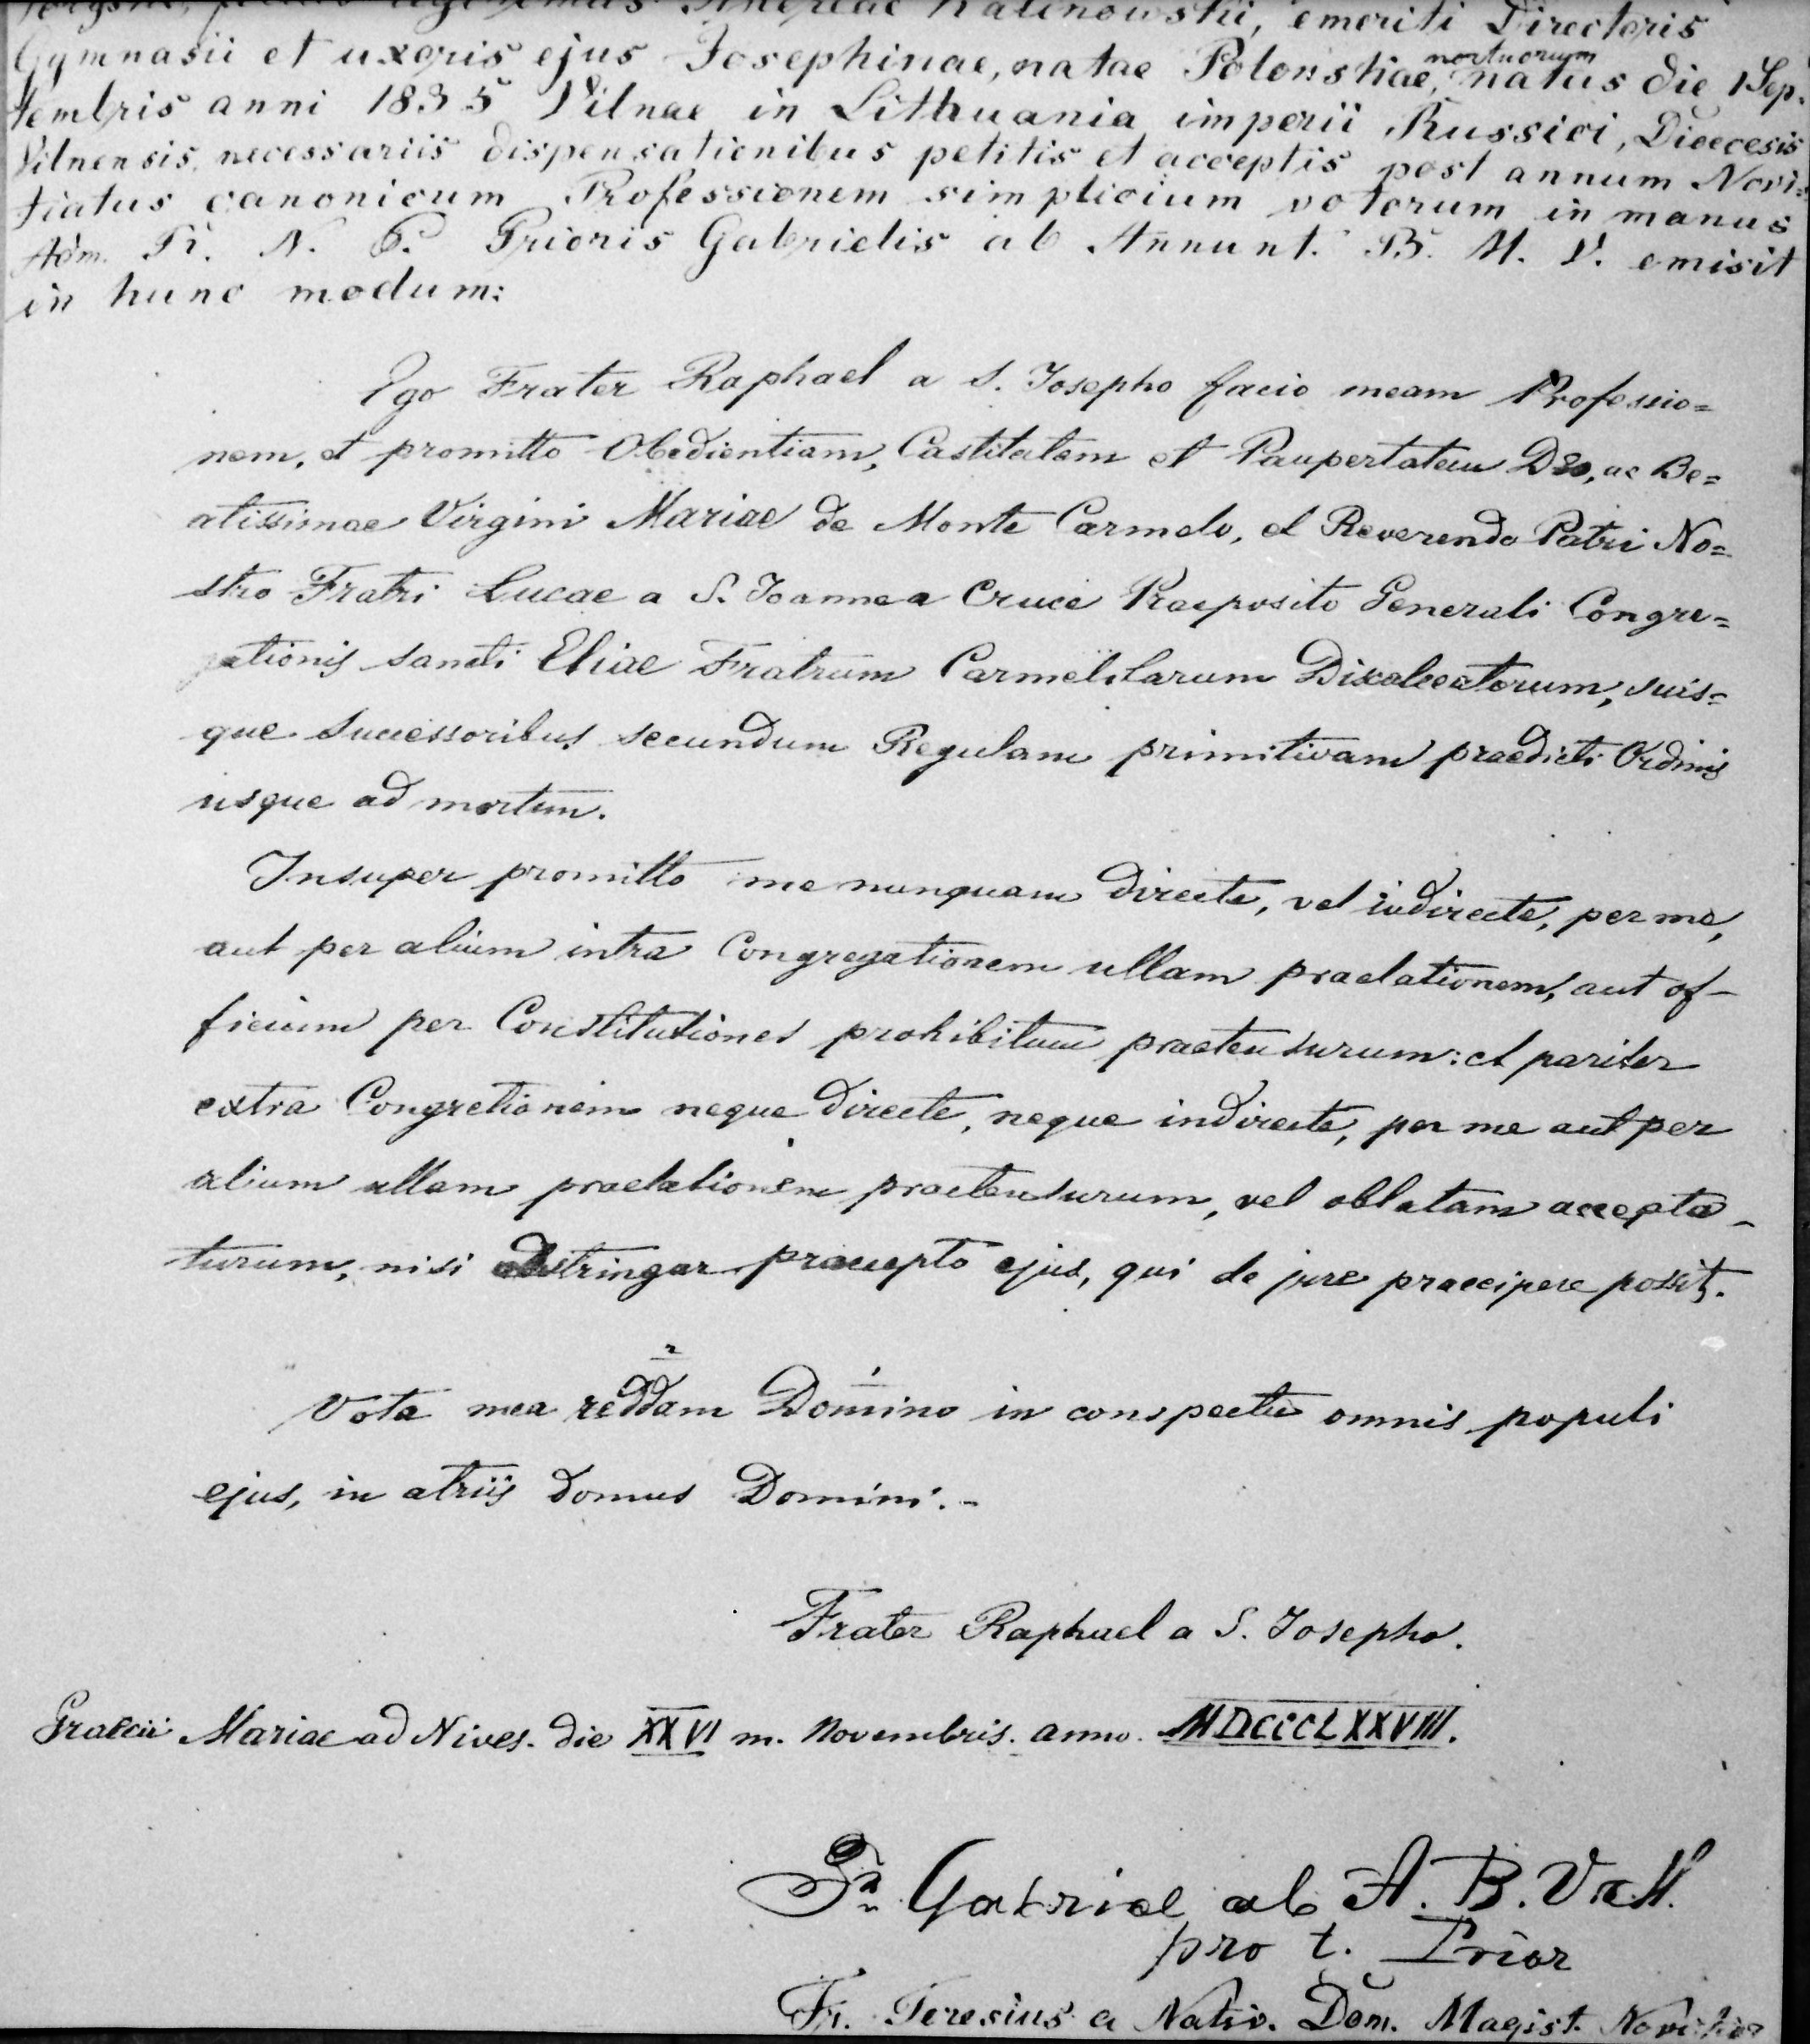 legitimus Andreae Kalinowski, emeriti Directoris
Gymnasii et uxoris ejus Josephinae, natae Polonskiae, mortuorum natus die 1 Sep-
tembris anni 1835 Vilnae in Lithuania imperii Russici, Dioecesis
Vilnensis, necessariis dispensationibus petitis et acceptis post annum Novi=
tiatus canonicum Professionem simplicium votorum in manus
Adm. R. N. P. Prioris Gabrielis ab Annunt. B. M. V. emisit
in hunc modum:
Ego Frater Raphael a S. Josepho facio meam Professio=
nem, et promitto Obedientiam, Castitatem et Paupertatem Deo, ac Be=
atissimae Virgini Mariae de Monte Carmelo, et Reverendo Patri No=
stro Fratri Lucae a S. Joanne a Cruce Praeposito Generali Congre=
gationis sancti Eliae Fratrum Carmelitarum Discalceatorum, suis=
que Successoribus secundum Regulam primitivam praedicti Ordinis
usque ad mortem.
Insuper promitto me nunquam directe, vel indirecte, per me,
aut per alium intra Congregationem ullam praelationem, aut of-
ficium per Constitutiones prohibitum praetensurum: et pariter
extra Congretionem neque directe, neque indirecte, per me aut per
alium ullam praelationem praetensurum, vel oblatam accepta-
turum, nisi adstringar praecepto ejus, qui de jure praecipere possit.
2 1
Vota mea reddam Domino in conspectu omnis populi
ejus, in atriis domus Domini. -
Frater Raphael a S. Josepho.
Graecii Mariae ad Nives. die XXVI m. Novembris. anno. MDCCCLXXVIII.
Fr. Gabriel ab A. B. V. M.
pro t. Prior
Fr. Teresius a Nativ. Dom. Magist.